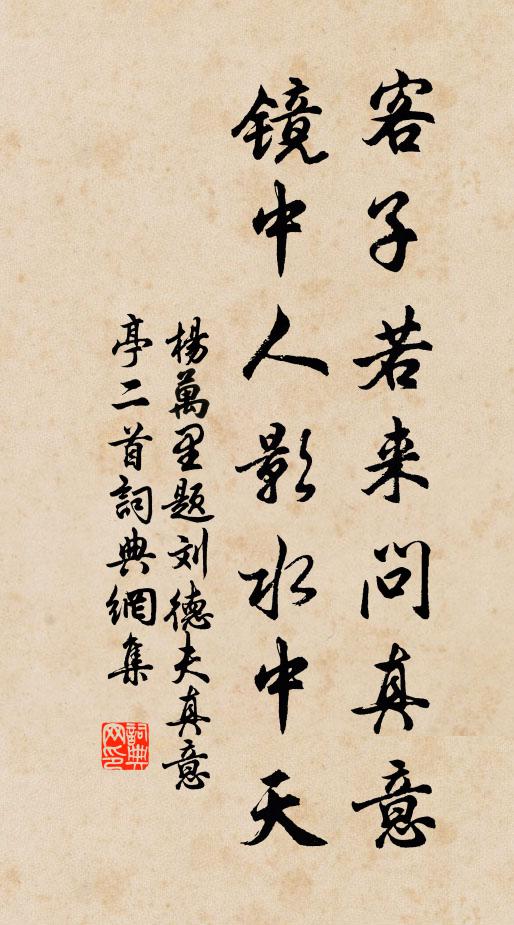 客子若来问真意
镜中人影水中天
杨萬里题刘德夫真意
亭二首詞典網集
詞典网印